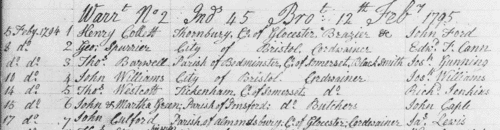 Warrt No 2 Ind 45 Brot 12th Feby 1795
5 Feby 1794 1 Henry Collett Thornbury, C. of Glocester Brazier &c John Ford
8 do 2 Geo. Spurrier City of Bristol Cordwainer Edwd T. Cann
do do 3 Thos Barwell Parish of Bedminster, C. of Somerset, Black Smith Jos Gunning
10 do 4 John Williams City of Bristol Cordwainer Jos Williams
14 do 5 Thos Westcott Tickenham, C. of Somerset do Richd Jenkins
15 do 6 John & Martha Green, Parish of do Butchers John Caple
17 do 7 John Parish of almondsbury, C. of Glocester, Cordwainer Jas Lewis